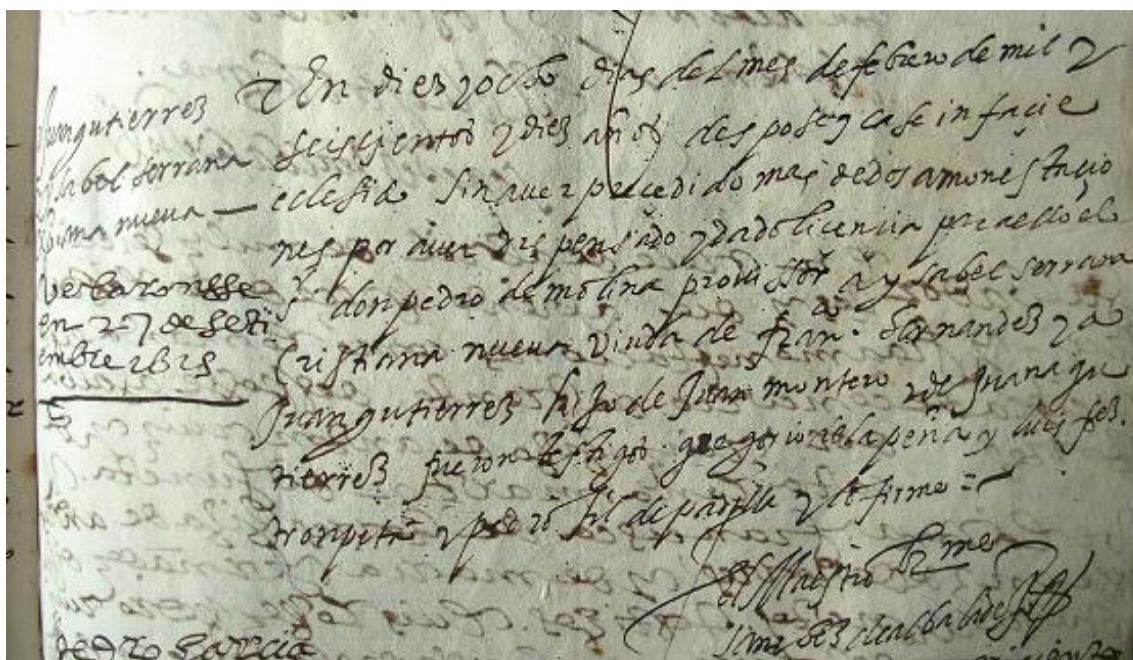 Juan gutierrez
ysabel serrana
xpiana nueva
velaronsse
en 27 de Seti
embre 1615
En diez y ocho dias del mes de febrero de mil y
seiscientos y diez años despose y case in façie
eclesia sin aver precedido mas de dos amonestacio
nes por aver dispensado y dado licencia para ello el
sr don pedro de molina provissor a ysabel serrana
cristiana nueva viuda de franco. hernandez y a
Juan gutierrez hijo de Juan montero y de Juana gu
tierrez fueron testigos gregorio de la peña y luis fez.
trompeta y pedro gil de padilla y lo firme =
el Maestro
pedro garcia